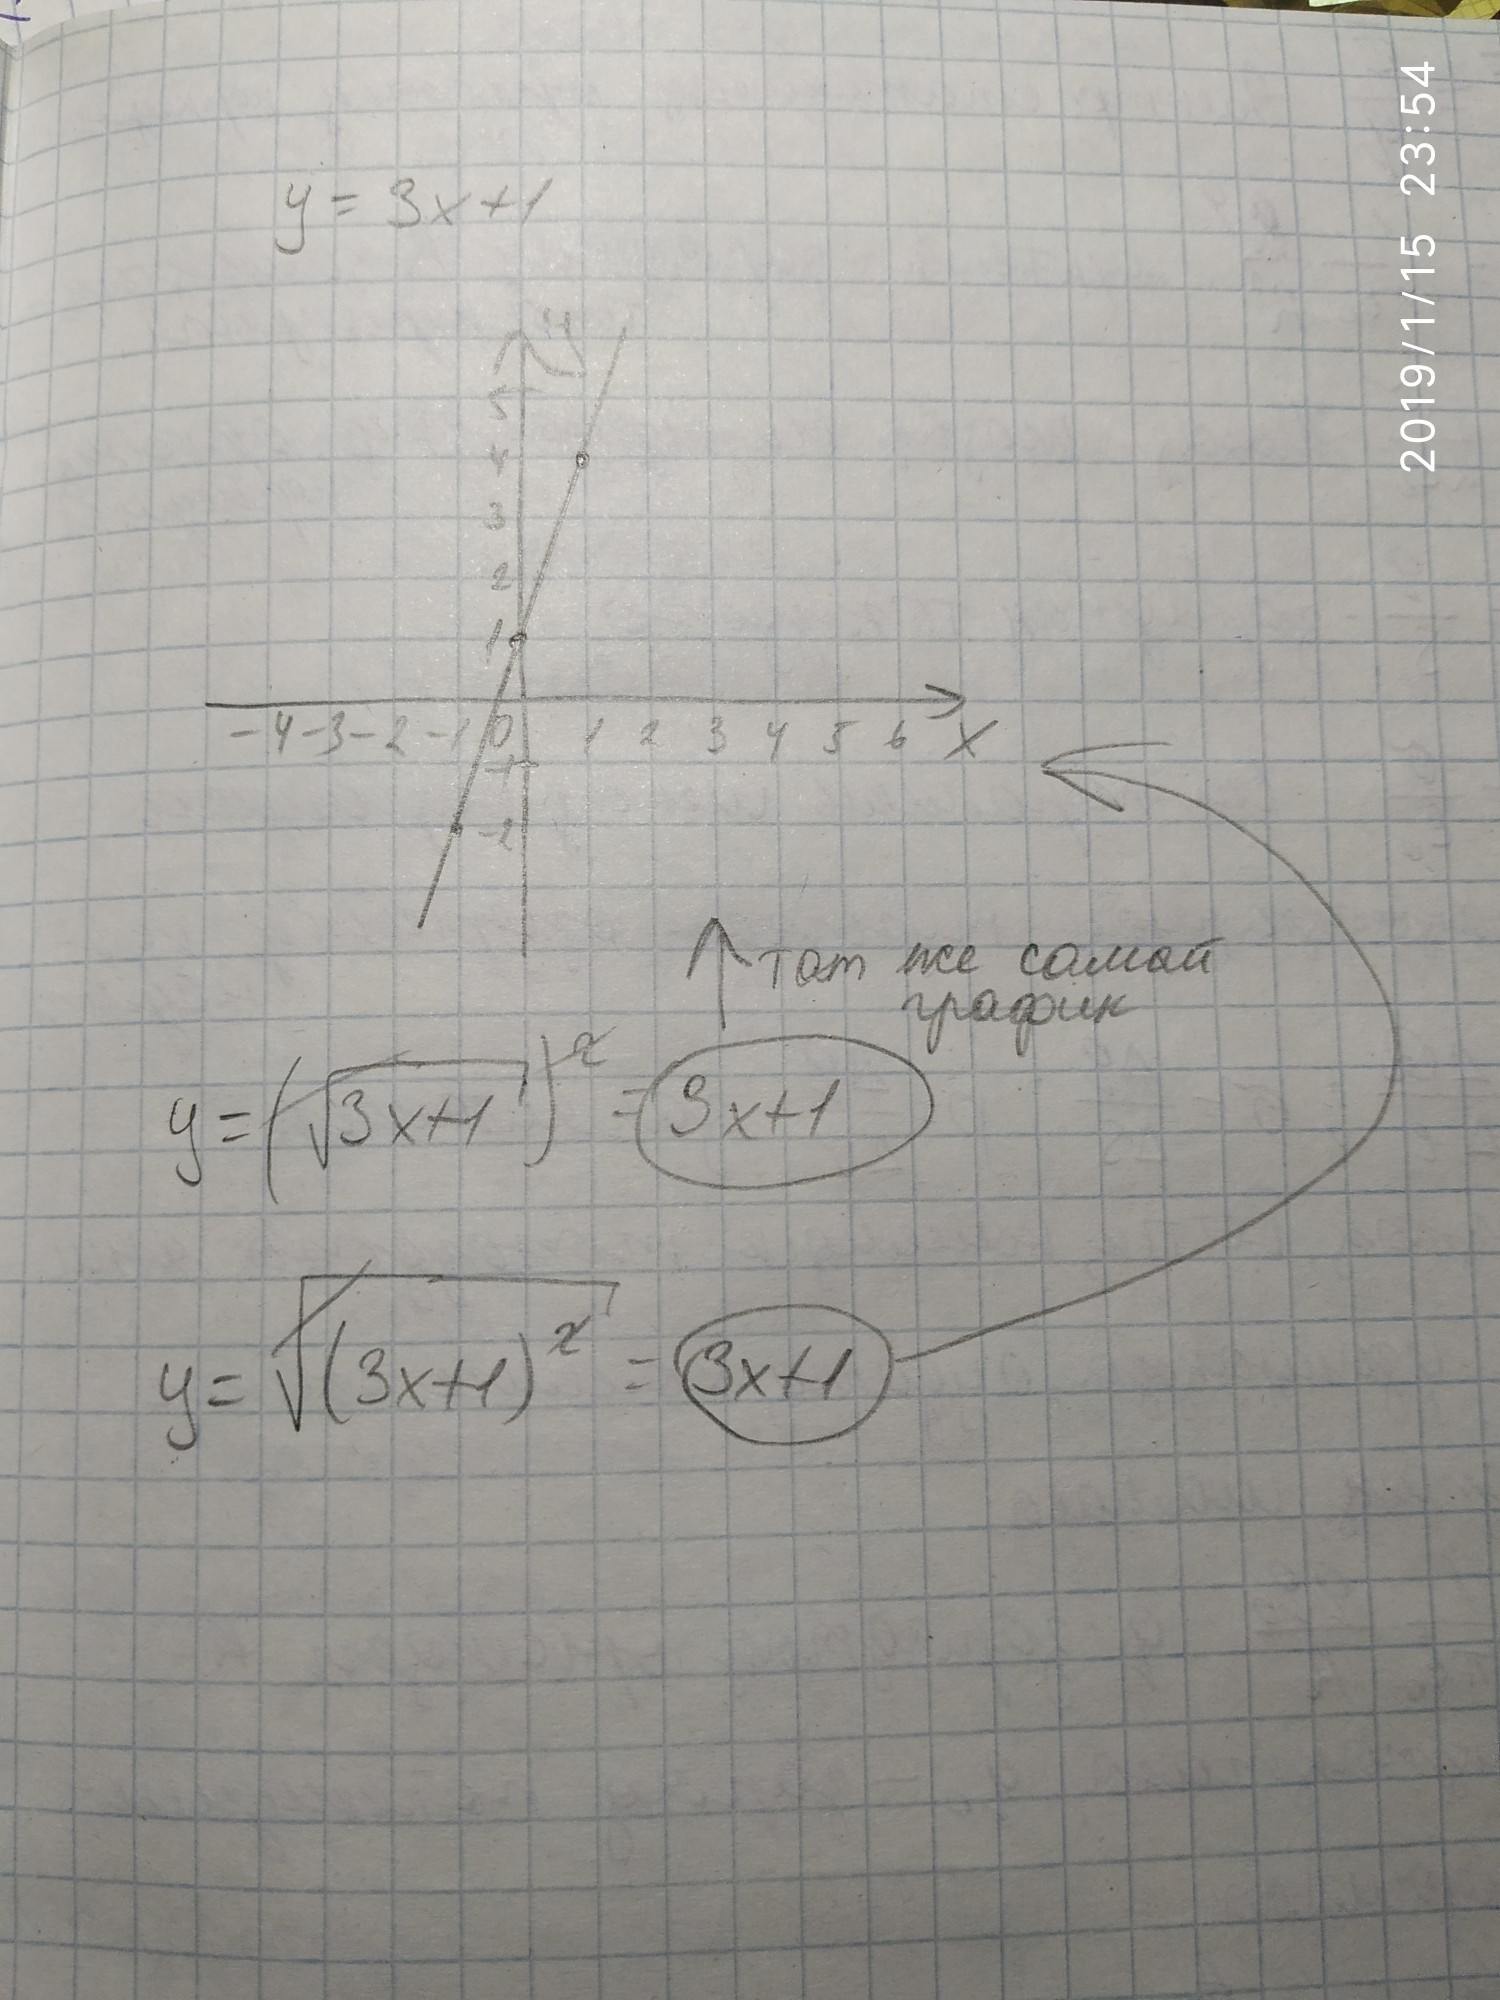 2019/1/15 23:54
y = 3x+1
y
5
4
3
2
1
-4 -3 -2 -1 0 1 2 3 4 5 6 X
-1
-2
тот же самый
график
y = (√3x+1)² = 3x+1
y = √(3x+1)² = 3x+1